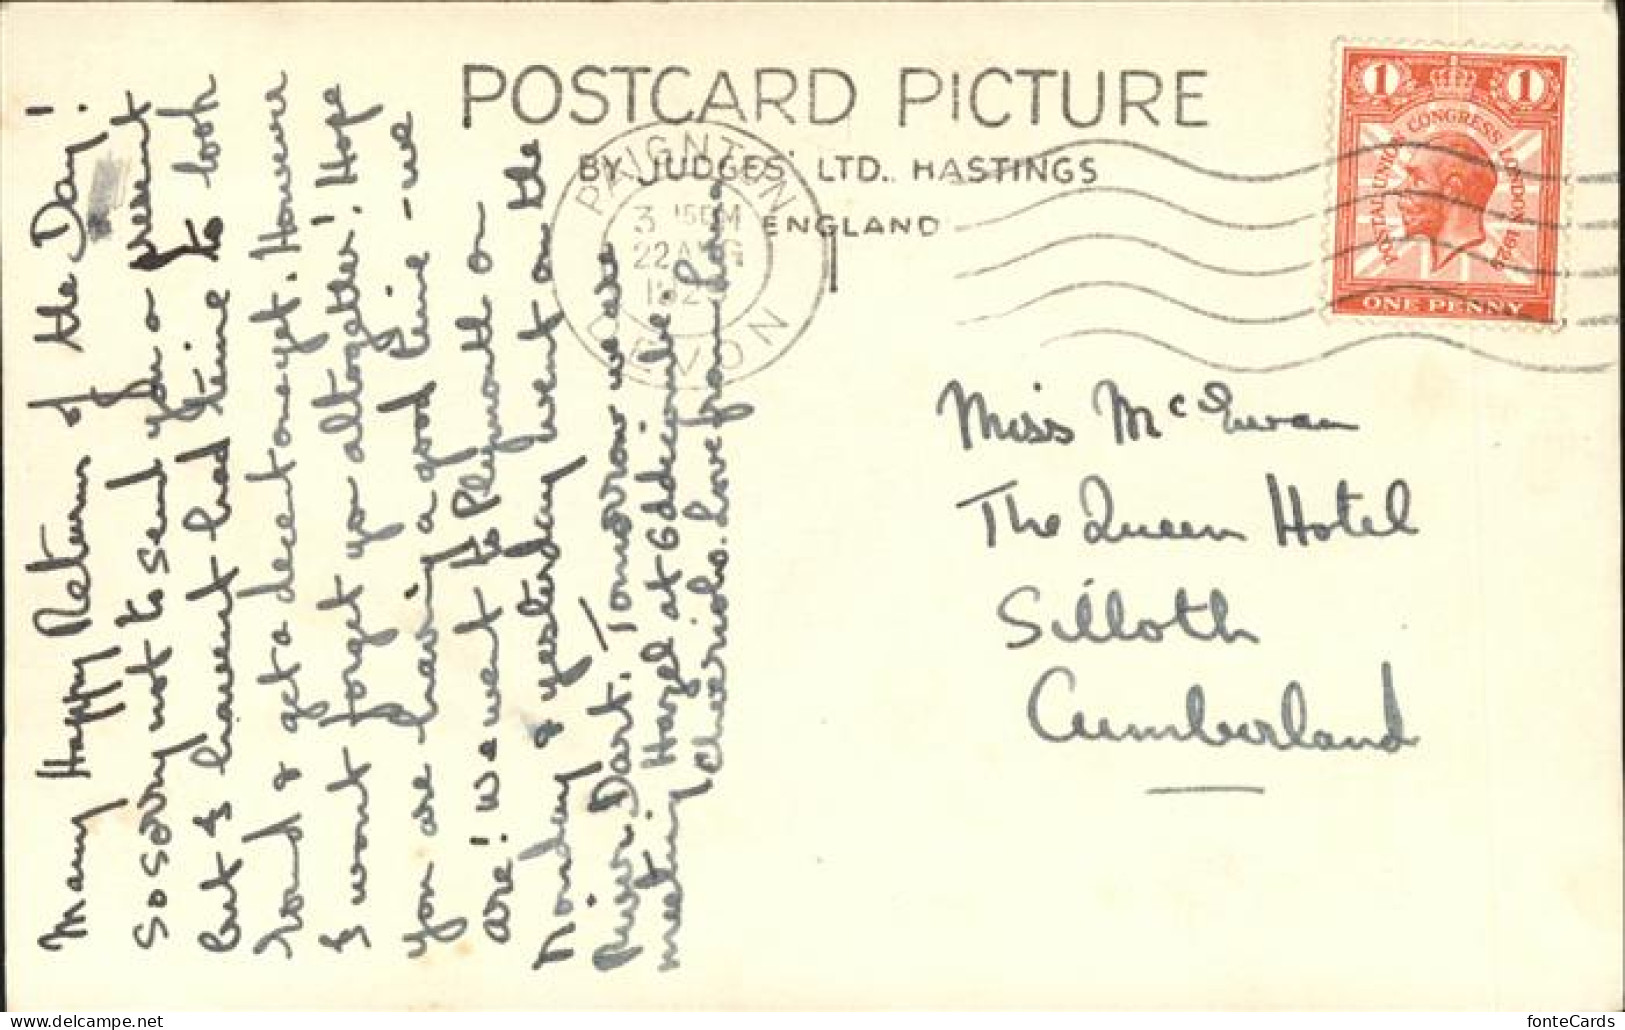 POSTCARD PICTURE
BY JUDGES' LTD., HASTINGS
ENGLAND
PAIGNTON
3 15PM
22 AUG
192
DEVON
1 1
POSTAL UNION CONGRESS LONDON 1929
ONE PENNY
Many Happy Returns of the Day!
So sorry not to send you a present
but I havent had time to look
round & get a decent one yet. However
I wont forget you altogether! Hope
you are having a good time - we
are! We went to Plymouth on
Monday & yesterday went on the
River Dart. Tomorrow we are
meeting Hazel at Oddicombe.
Cheerioh. Love from
Miss McEwan
The Queen Hotel
Silloth
Cumberland
fonteCards
www.delcampe.net